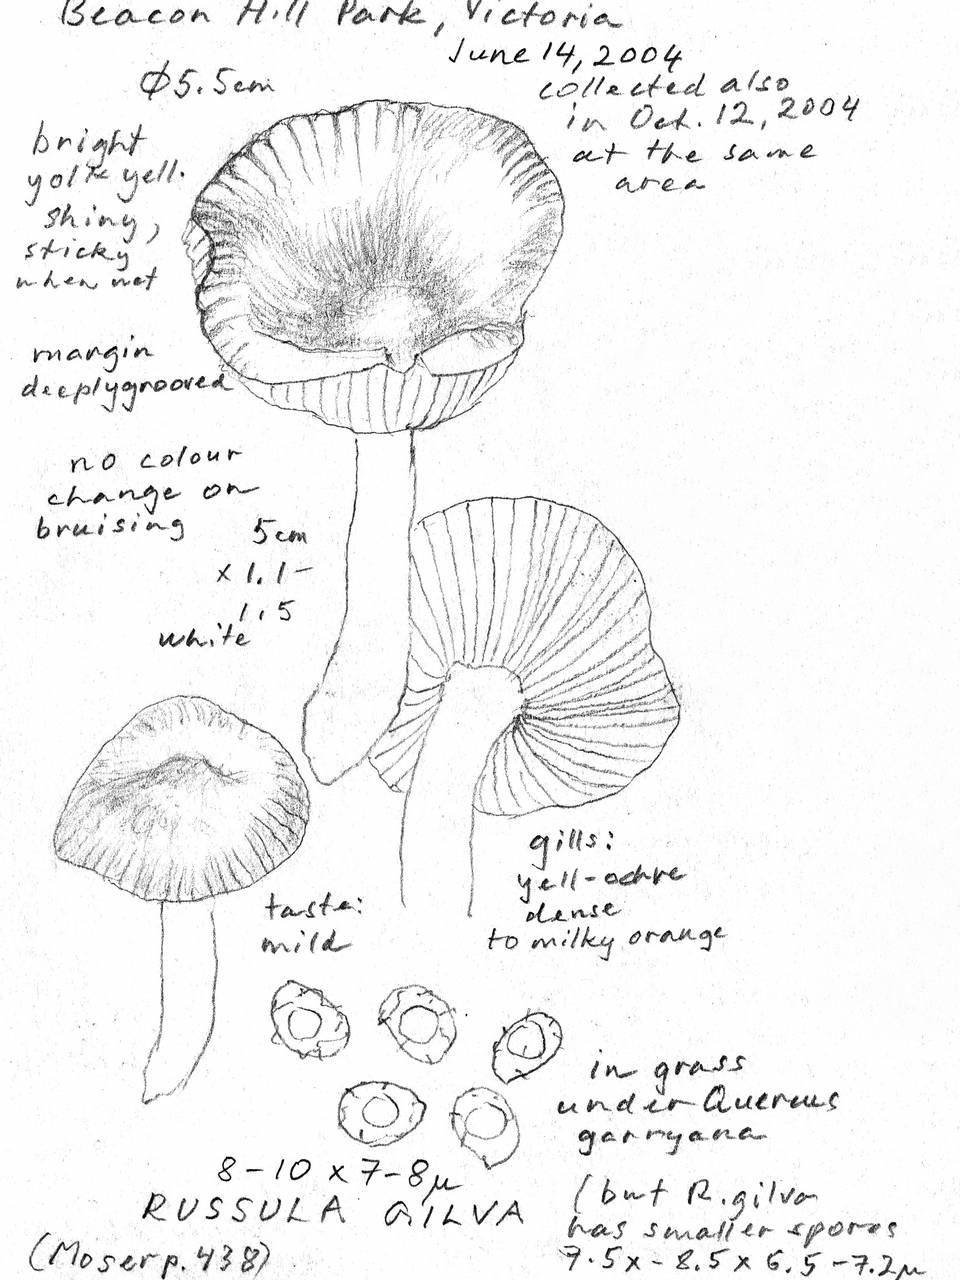 Beacon Hill Park, Victoria
June 14, 2004
collected also
in Oct. 12, 2004
at the same
area
Φ5.5cm
bright
yolk yell.
shiny,
sticky
when wet
margin
deeply grooved
no colour
change on
bruising
5cm
x 1.1-
1.5
white
gills:
yell-ochre
dense
to milky orange
taste:
mild
in grass
under Quercus
garryana
8-10 x 7-8µ
RUSSULA GILVA
(Moser p. 438)
(but R. gilva
has smaller spores
7.5x-8.5x6.5-7.2µ